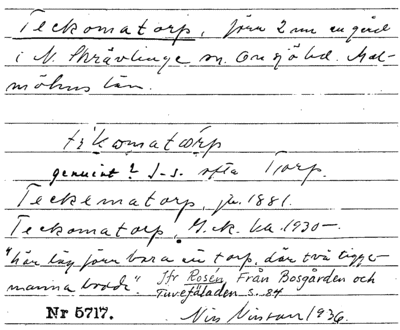 Teckomatorp, förr 2 nu en gård
i N. Skrävlinge sn. Onsjö hd. Mal-
möhus län.
tekomatorp
genuint? J-s. ofta Torp.
Teckematorp, jr. 1881.
Teckomatorp, G.k. ka 1930-.
"här låg förr bara en torp, där två tiggar-
manna bodde". Jfr Rosén, Från Bosgården och
Tuvefäladen s. 84
Nr 5717.
Nils Nilsson 1936.